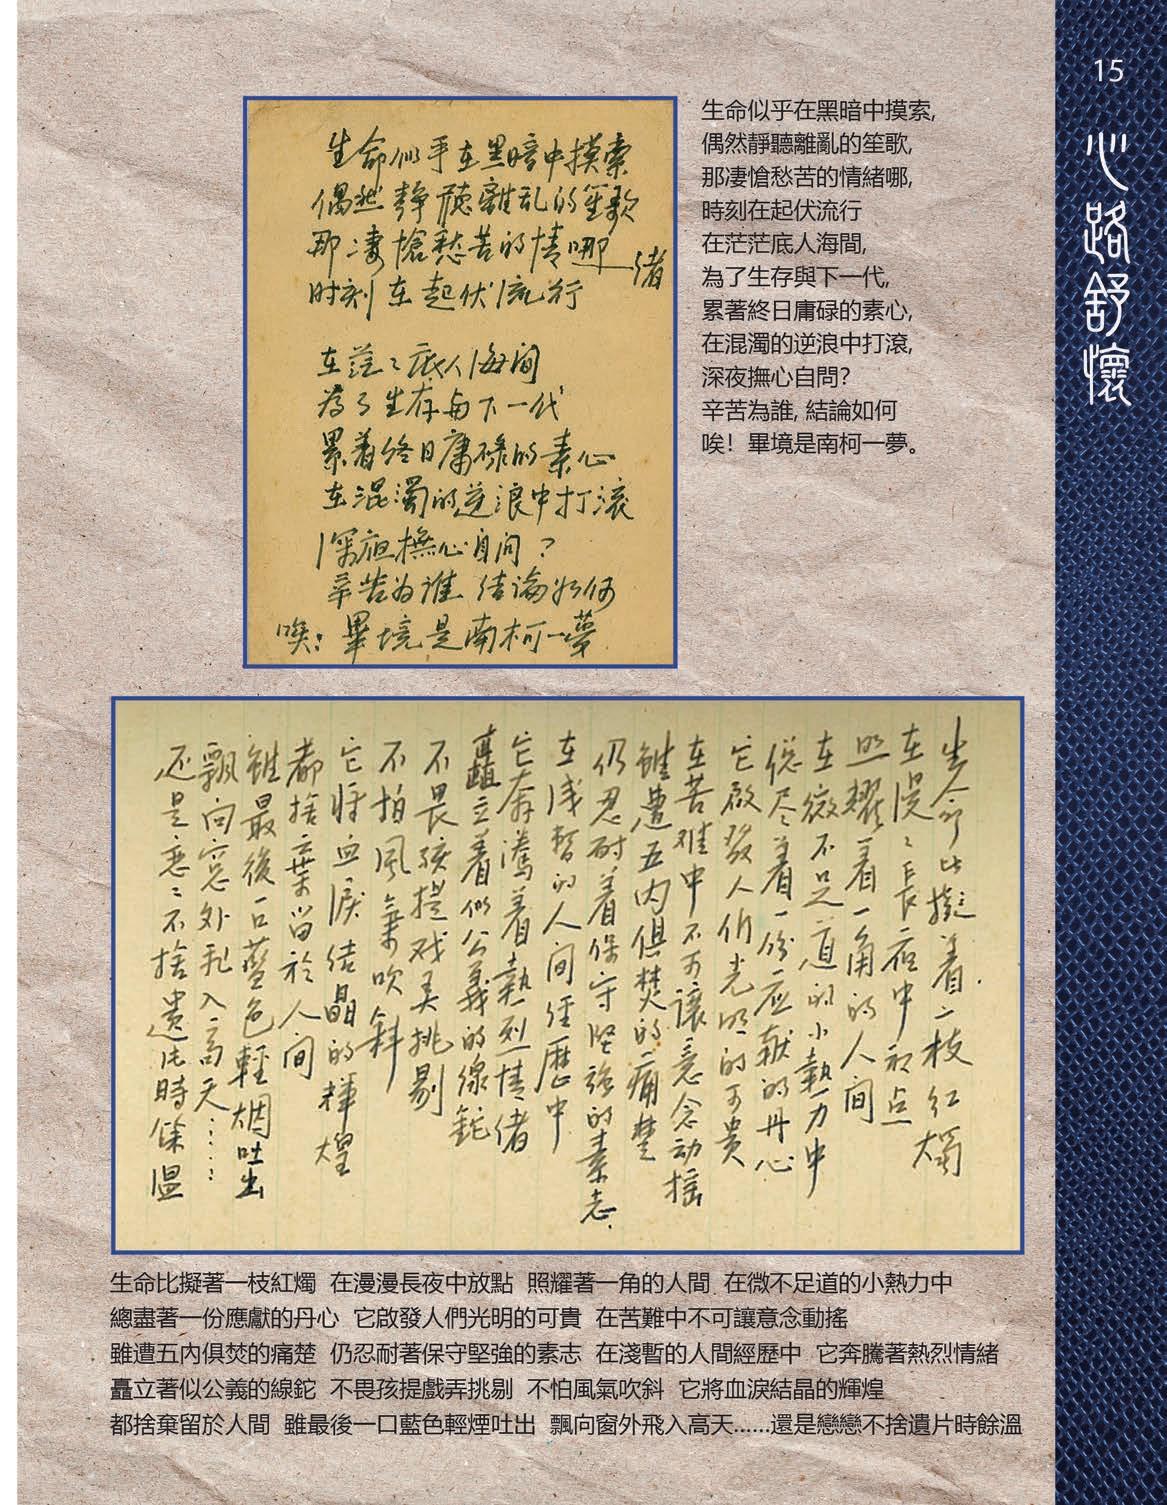 15
心路舒懷
生命似乎在黑暗中摸索
偶然靜聽離乱的笙歌
那凄愴愁苦的情哪
緒
时刻在起伏流行
在茫々底人海间
為了生存与下一代
累着终日庸碌的素心
在混濁的逆浪中打滚
深夜撫心自问?
辛苦为谁 结論如何
唉!畢境是南柯一夢
生命似乎在黑暗中摸索,
偶然靜聽離亂的笙歌,
那凄愴愁苦的情緒哪,
時刻在起伏流行
在茫茫底人海間,
為了生存與下一代,
累著終日庸碌的素心,
在混濁的逆浪中打滾,
深夜撫心自問?
辛苦為誰, 結論如何
唉!畢境是南柯一夢。
生命比擬着一枝红燭
在漫々長夜中放点
照耀着一角的人间
在微不足道的小熱力中
総尽着一份应献的丹心
它啟發人们光明的可贵
在苦难中不可讓意念动摇
雖遭五内俱焚的痛楚
仍忍耐着保守坚強的素志.
在浅暫的人间经歷中
它奔騰着熱烈情绪
矗立着似公義的線鉈
不畏孩提戏弄挑剔
不怕風氣吹斜
它将血淚结晶的輝煌
都捨棄留於人间
雖最後一口藍色輕烟吐出
飄向窓外飛入高天……
还是恋々不捨遺片時餘温
生命比擬著一枝紅燭 在漫漫長夜中放點 照耀著一角的人間 在微不足道的小熱力中
總盡著一份應獻的丹心 它啟發人們光明的可貴 在苦難中不可讓意念動搖
雖遭五內俱焚的痛楚 仍忍耐著保守堅強的素志 在淺暫的人間經歷中 它奔騰著熱烈情緒
矗立著似公義的線鉈 不畏孩提戲弄挑剔 不怕風氣吹斜 它將血淚結晶的輝煌
都捨棄留於人間 雖最後一口藍色輕煙吐出 飄向窗外飛入高天......還是戀戀不捨遺片時餘溫